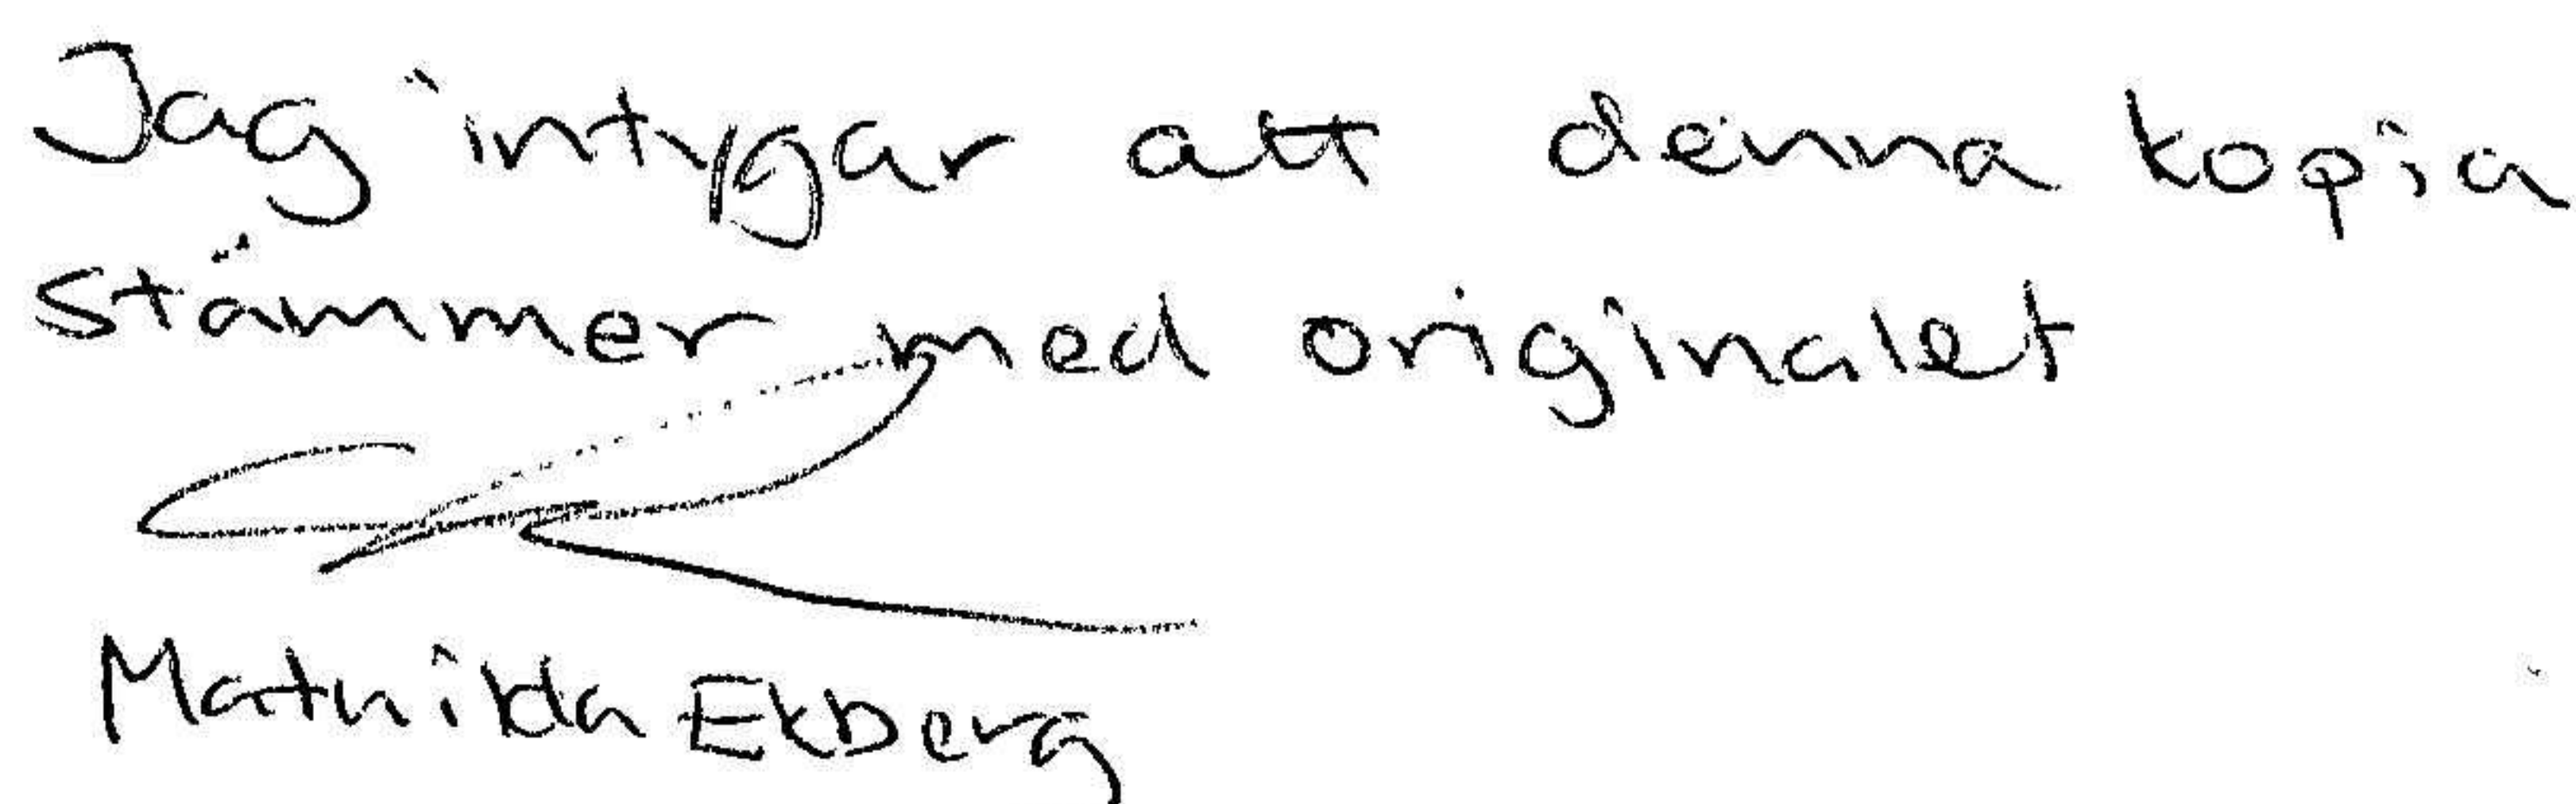 Jag intygar att denna kopia
stämmer med originalet
Mathilda Ekberg